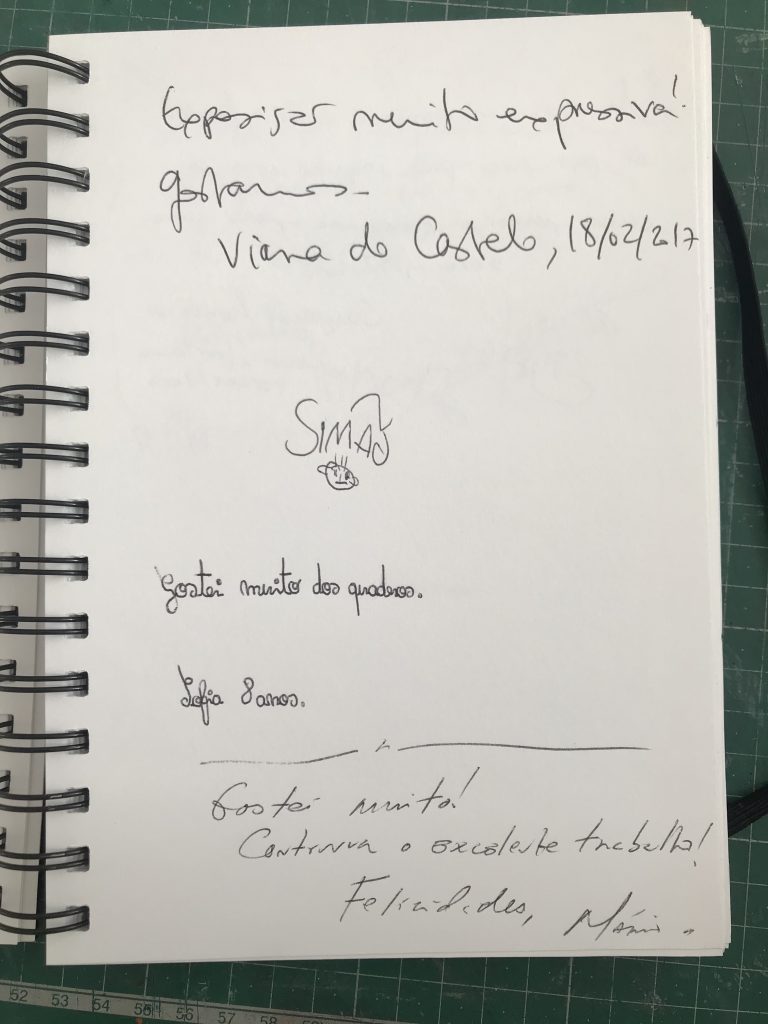 Exposição muito expressiva!
gostamos
Viana do Castelo, 18/02/2017
SIMÃO
Gostei muito dos quadros.
Sofia 8 anos.
Gostei muito!
Continua o excelente trabalho!
Felicidades, Mário.
52 53 54 55 56 57 58